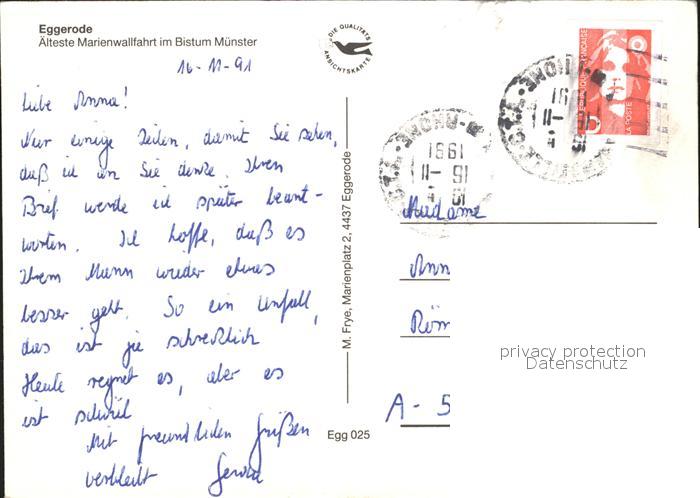 Eggerode
Älteste Marienwallfahrt im Bistum Münster
DIE QUALITÄTS
ANSICHTSKARTE
16-11-91
Liebe Anna!
Nur einige Zeilen, damit Sie sehen,
daß ich an Sie denke. Ihren
Brief werde ich später beant-
worten. Ich hoffe, daß es
Ihrem Mann wieder etwas
besser geht. So ein Unfall,
das ist ja schrecklich
Heute regnet es, aber es
ist schwül
Mit freundlichen Grüßen
verbleibt
M. Frye, Marienplatz 2, 4437 Eggerode
Egg 025
RÉPUBLIQUE FRANÇAISE
LA POSTE
RHONE
1991
15-11
Madame
Ann
Röm
A-5
privacy protection
Datenschutz